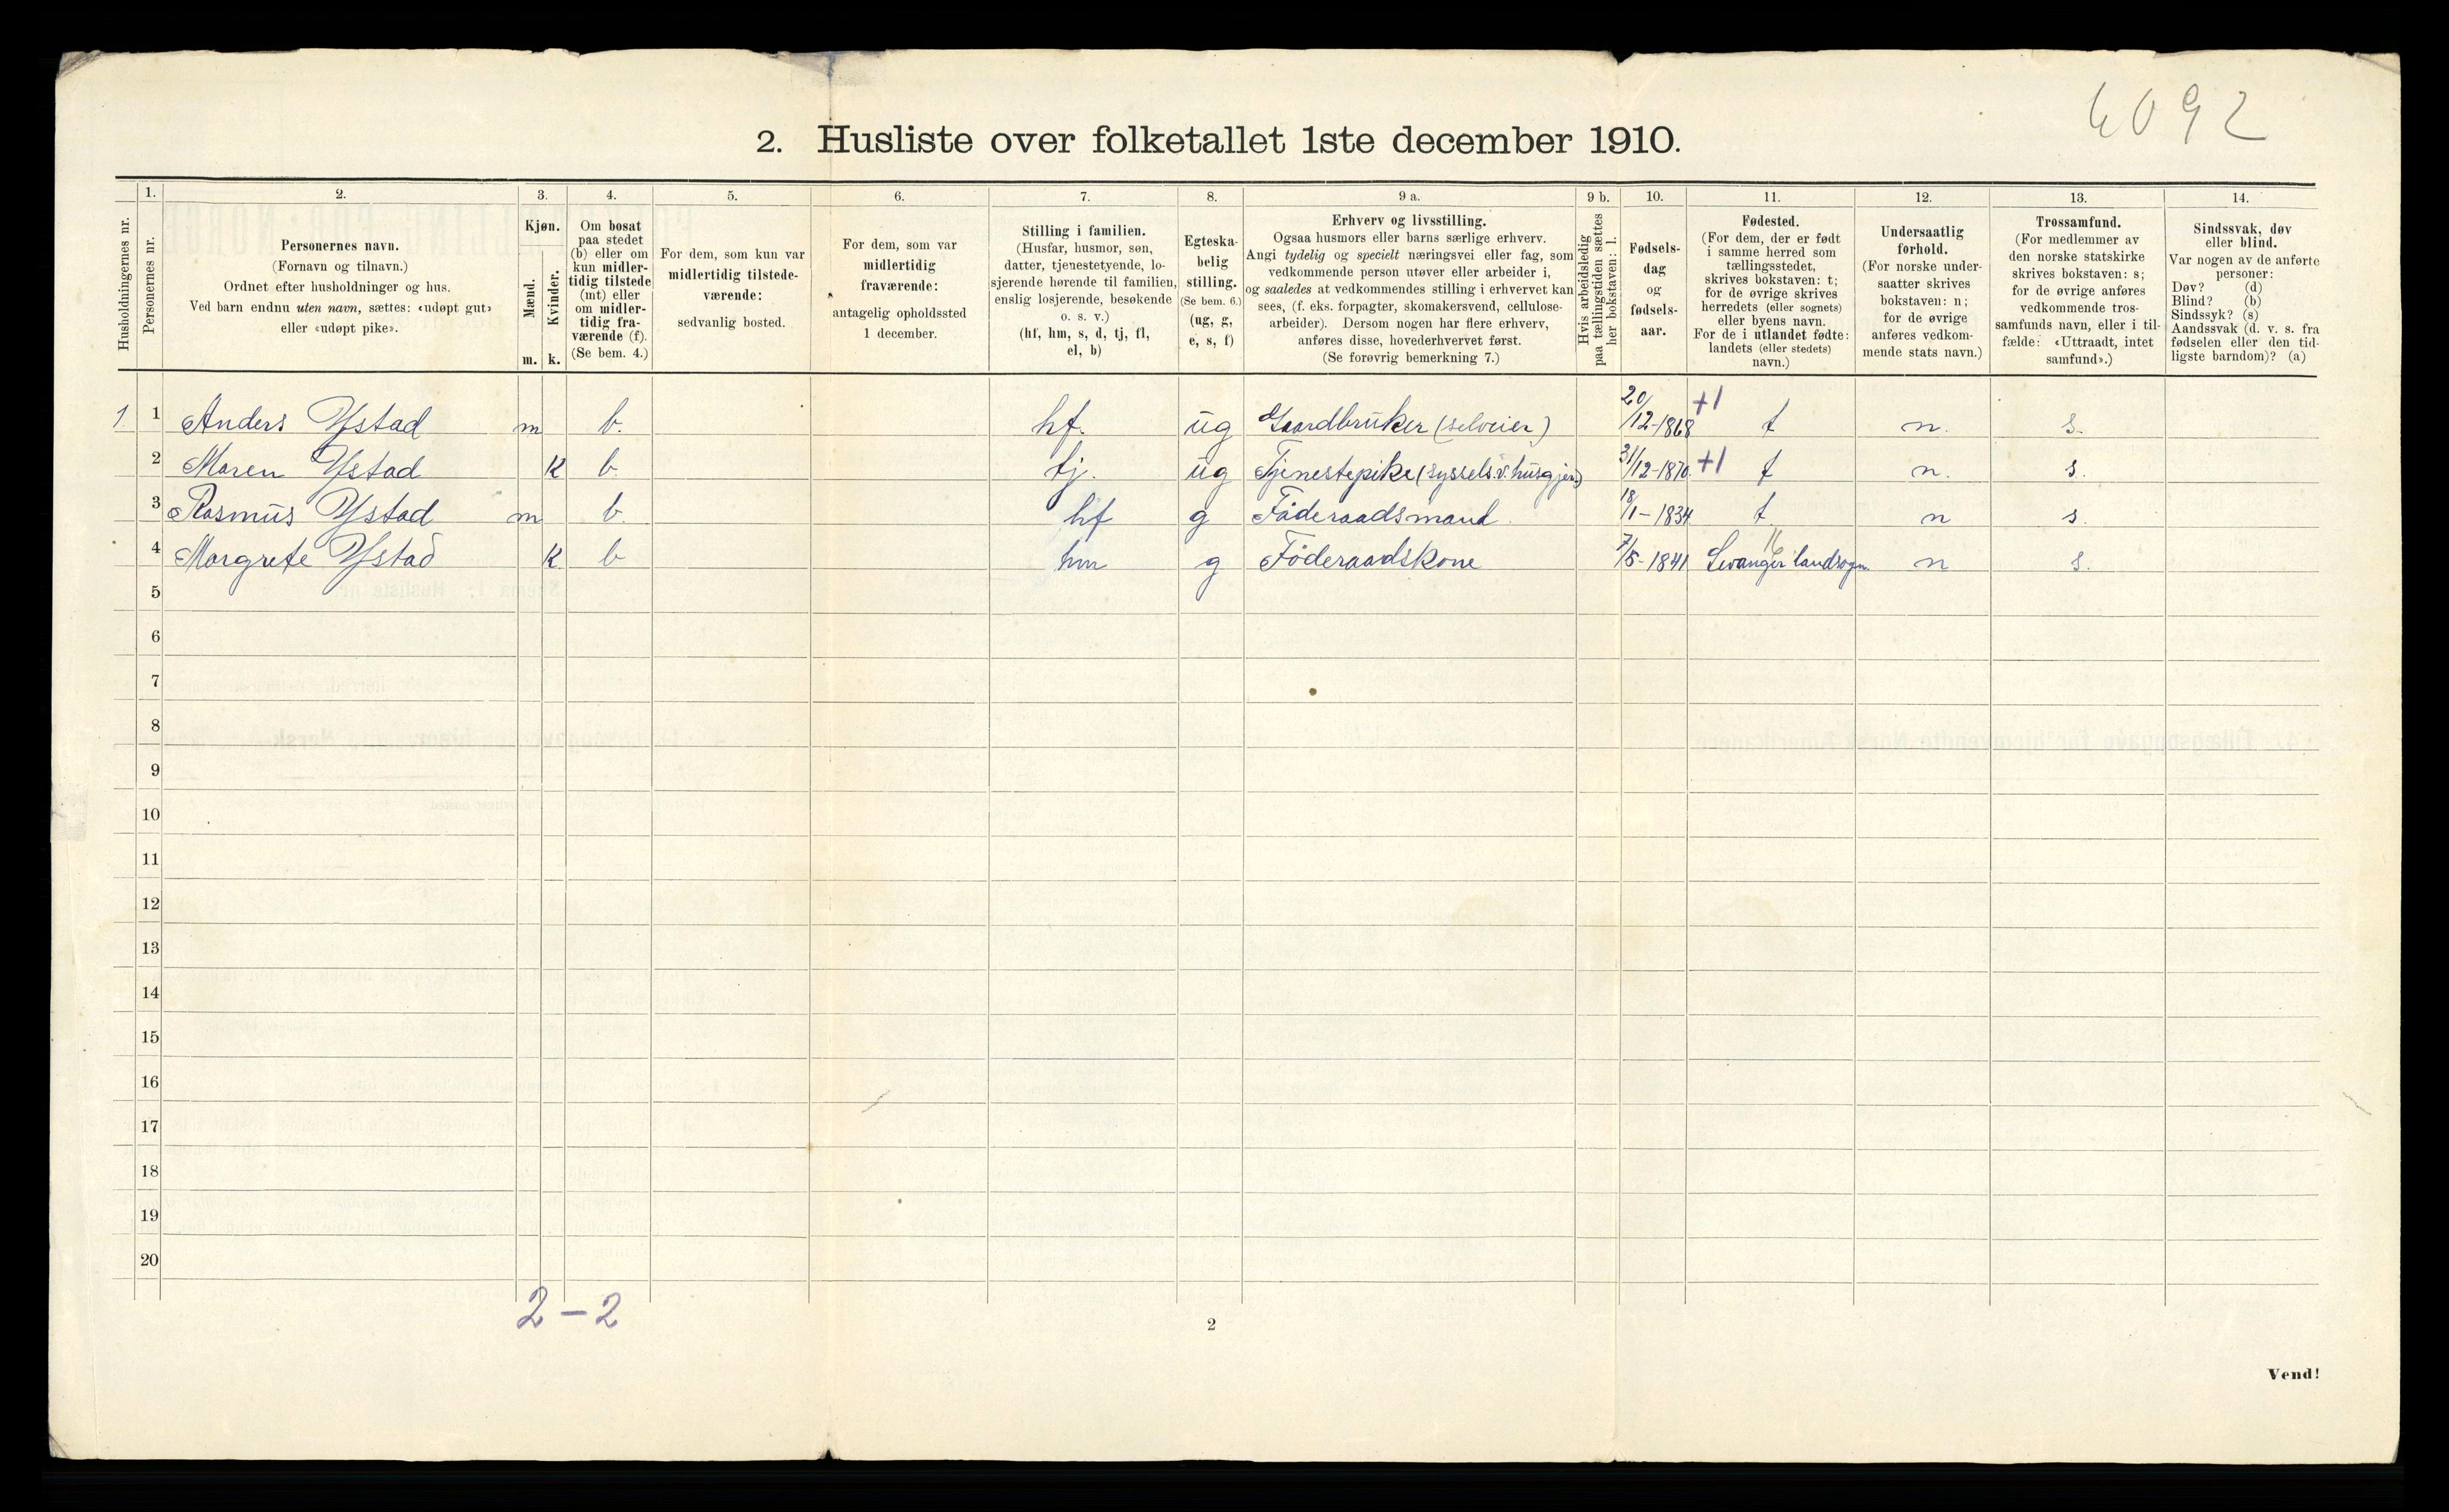 6092
2. Husliste over folketallet 1ste december 1910.
Husholdningernes nr.
1.
Personernes nr.
2.
Personernes navn.
(Fornavn og tilnavn.)
Ordnet efter husholdninger og hus.
Ved barn endnu uten navn, sættes: «udøpt gut»
eller «udøpt pike».
3.
Kjøn.
Mænd.
Kvinder.
m. k.
4.
Om bosat
paa stedet
(b) eller om
kun midler-
tidig tilstede
(mt) eller
om midler-
tidig fra-
værende (f).
(Se bem. 4.)
5.
For dem, som kun var
midlertidig tilstede-
værende:
sedvanlig bosted.
6.
For dem, som var
midlertidig
fraværende:
antagelig opholdssted
1 december.
7.
Stilling i familien.
(Husfar, husmor, søn,
datter, tjenestetyende, lo-
sjerende hørende til familien,
enslig losjerende, besøkende
o. s. v.)
(hf, hm, s, d, tj, fl,
el, b)
8.
Egteska-
belig
stilling.
(Se bem. 6.)
(ug, g,
e, s, f)
9 a.
Erhverv og livsstilling.
Ogsaa husmors eller barns særlige erhverv.
Angi tydelig og specielt næringsvei eller fag, som
vedkommende person utøver eller arbeider i,
og saaledes at vedkommendes stilling i erhvervet kan
sees, (f. eks. forpagter, skomakersvend, cellulose-
arbeider). Dersom nogen har flere erhverv,
anføres disse, hovederhvervet først.
(Se forøvrig bemerkning 7.)
9 b.
Hvis arbeidsledig
paa tællingstiden sættes
her bokstaven: l.
10.
Fødsels-
dag
og
fødsels-
aar.
11.
Fødested.
(For dem, der er født
i samme herred som
tællingsstedet,
skrives bokstaven: t;
for de øvrige skrives
herredets (eller sognets)
eller byens navn.
For de i utlandet fødte:
landets (eller stedets)
navn.)
12.
Undersaatlig
forhold.
(For norske under-
saatter skrives
bokstaven: n;
for de øvrige
anføres vedkom-
mende stats navn.)
13.
Trossamfund.
(For medlemmer av
den norske statskirke
skrives bokstaven: s;
for de øvrige anføres
vedkommende tros-
samfunds navn, eller i til-
fælde: «Uttraadt, intet
samfund».)
14.
Sindssvak, døv
eller blind.
Var nogen av de anførte
personer:
Døv? (d)
Blind? (b)
Sindssyk? (s)
Aandssvak (d. v. s. fra
fødselen eller den tid-
ligste barndom)? (a)
1 1 Anders Ystad m b. hf. ug Gaardbruker (selveier) 20/12-1868 +1 t n. s.
2 Maren Ystad k b. tj. ug Tjenestepike (syssels.v.husgjer.) 31/12-1870. +1 t n. s.
3 Rasmus Ystad m b. hf g Föderaadsmand. 18/1-1834 t n s.
4 Margrete Ystad k b hm g Föderaadskone 7/5-1841 16 Levanger landsogn. n s.
5
6
7
8
9
10
11
12
13
14
15
16
17
18
19
20
2-2
2
Vend!